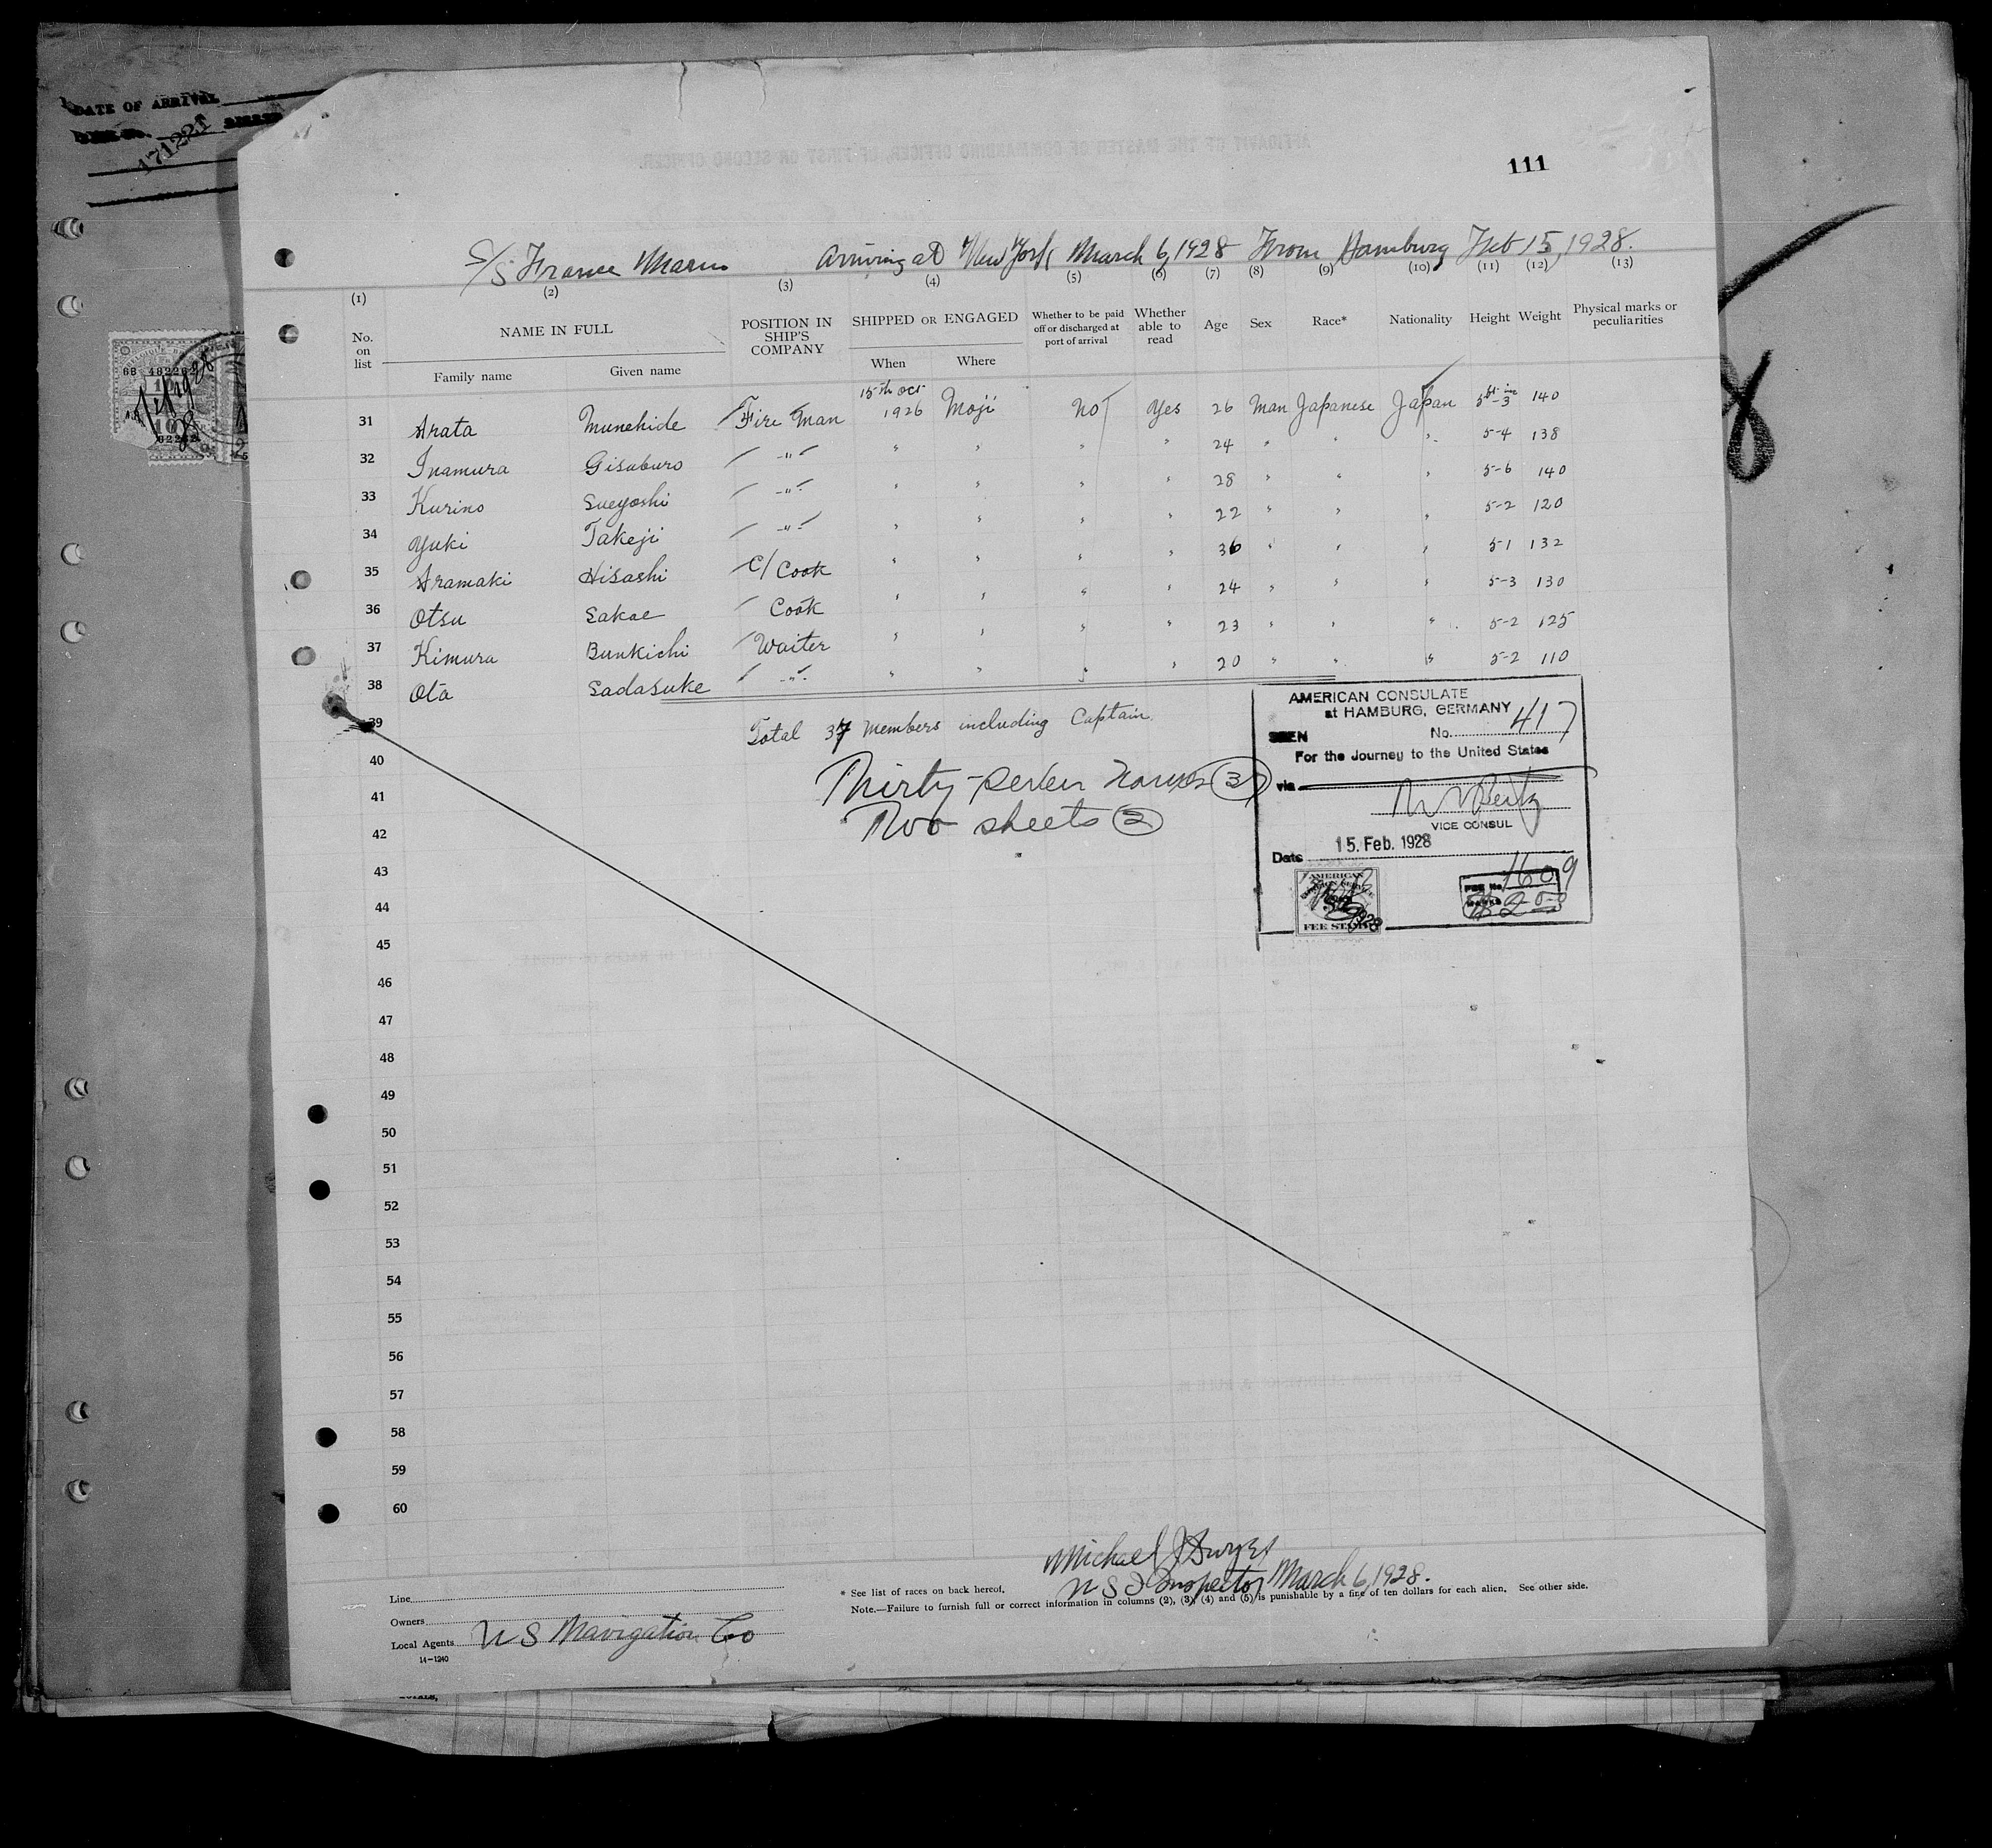 DATE OF ARRIVAL
171221
111
S/S France Maru Arriving at New York March 6, 1928 From Hamburg Feb 15, 1928.
(1) (2) (3) (4) (5) (6) (7) (8) (9) (10) (11) (12) (13)
No. on list NAME IN FULL POSITION IN SHIP'S COMPANY SHIPPED OR ENGAGED Whether to be paid off or discharged at port of arrival Whether able to read Age Sex Race* Nationality Height Weight Physical marks or peculiarities
Family name Given name When Where
31 Arata Munehide Fire man 15th Oct 1926 Moji No Yes 26 Man Japanese Japan 5ft-3in 140
32 Inamura Gisaburo -"- " " " " 24 " " " 5-4 138
33 Kurino Sueyoshi -"- " " " " 28 " " " 5-6 140
34 Yuki Takeji -"- " " " " 22 " " " 5-2 120
35 Aramaki Hisashi C/Cook " " " " 36 " " " 5-1 132
36 Otsu Sakae Cook " " " " 24 " " " 5-3 130
37 Kimura Bunkichi Waiter " " " " 23 " " " 5-2 125
38 Ota Sadasuke -"- " " " " 20 " " " 5-2 110
39
Total 37 members including Captain.
Thirty-seven names (37)
Two sheets (2)
AMERICAN CONSULATE
at HAMBURG, GERMANY
SEEN No. 417
For the Journey to the United States
via
VICE CONSUL
Date 15. Feb. 1928
AMERICAN
FEE STAMP
FEE No. 1609
40
41
42
43
44
45
46
47
48
49
50
51
52
53
54
55
56
57
58
59
60
Michael J Dwyer
U S I Inspector March 6, 1928.
* See list of races on back hereof.
Note.—Failure to furnish full or correct information in columns (2), (3), (4) and (5) is punishable by a fine of ten dollars for each alien. See other side.
Line
Owners
Local Agents U S Navigation Co
14-1240